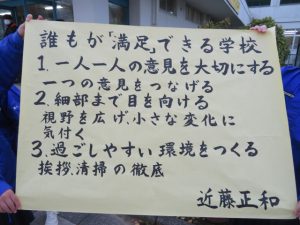 誰もが「満足」できる学校
1.一人一人の意見を大切にする
一つの意見をつなげる
2.細部まで目を向ける
視野を広げ、小さな変化に
気付く
3.過ごしやすい環境をつくる
挨拶、清掃の徹底
近藤正和